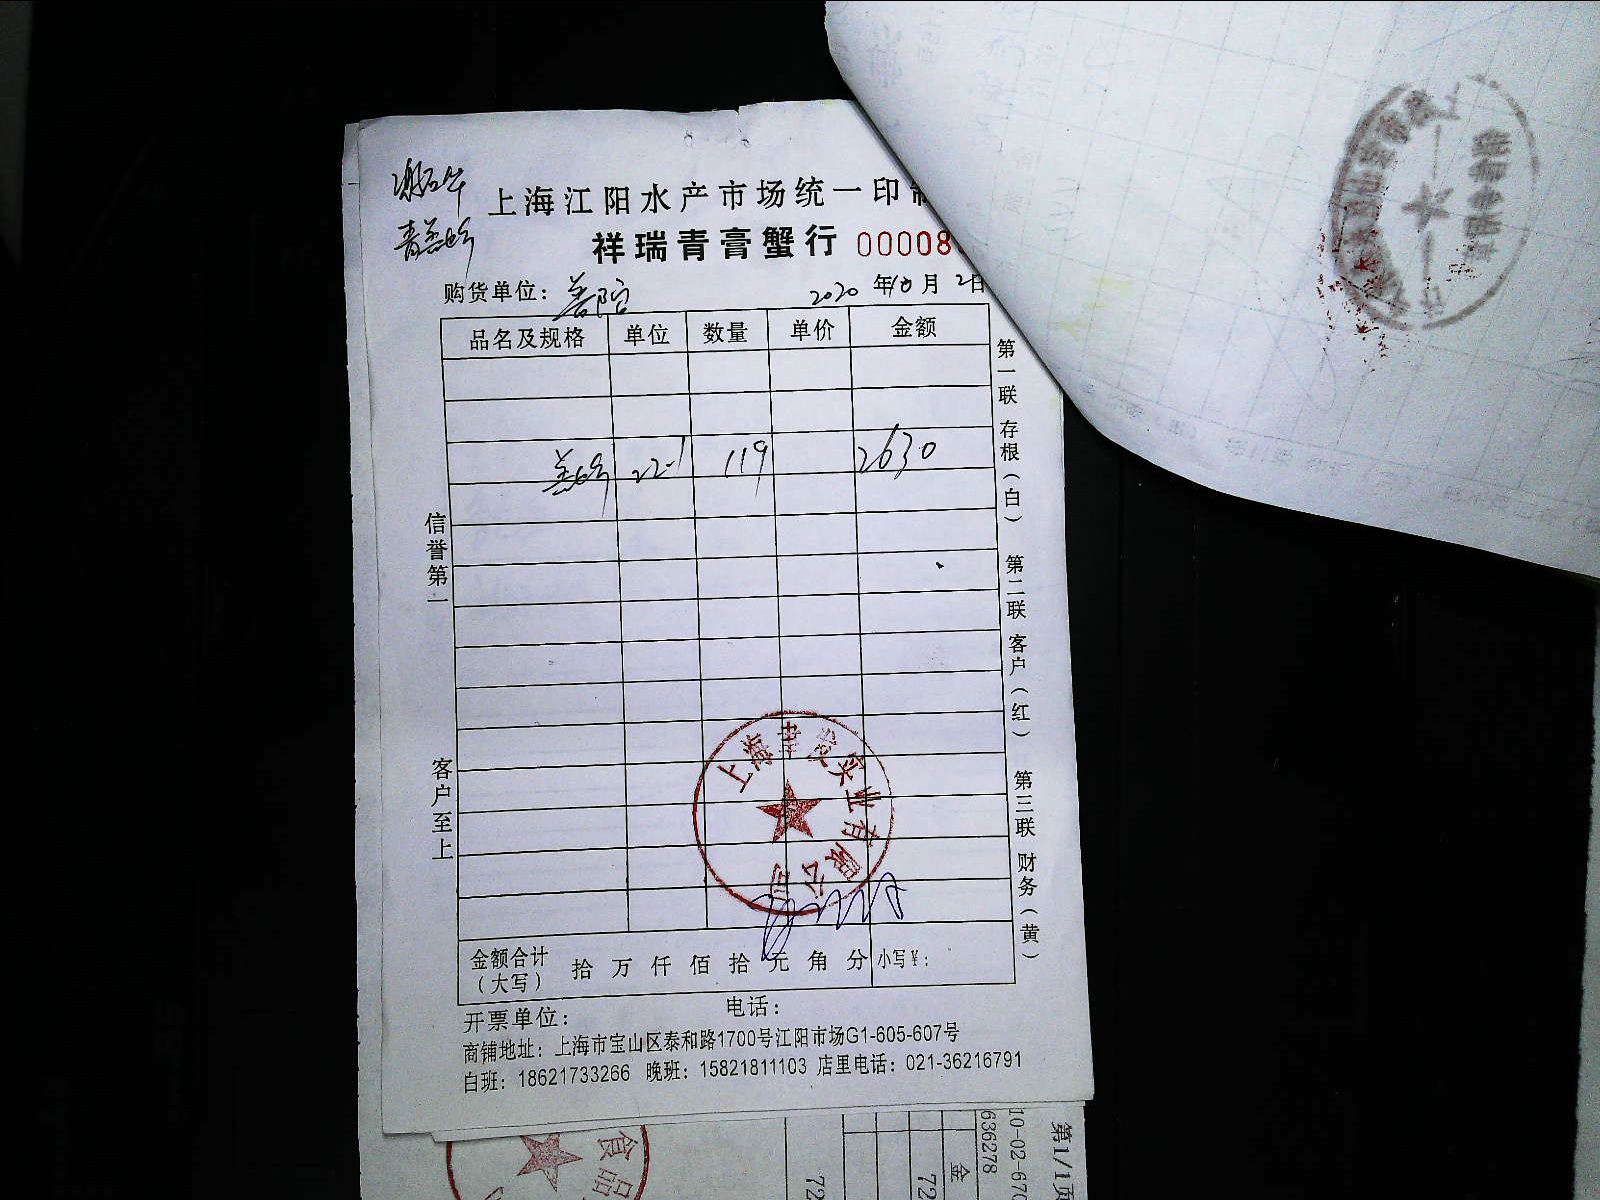 上海江阳水产市场统一印制
祥瑞青膏蟹行 00008
购货单位：
2020 年10月2日
品名及规格 单位 数量 单价 金额
22.1 119 2630
信誉第一
客户至上
第一联 存根（白）
第二联 客户（红）
第三联 财务（黄）
上海 发实业有限公司
金额合计（大写） 拾 万 仟 佰 拾 元 角 分 小写￥：
开票单位： 电话：
商铺地址：上海市宝山区泰和路1700号江阳市场G1-605-607号
白班：18621733266 晚班：15821811103 店里电话：021-36216791
食品
第1/1页
10-02-670
636278
金
72
72